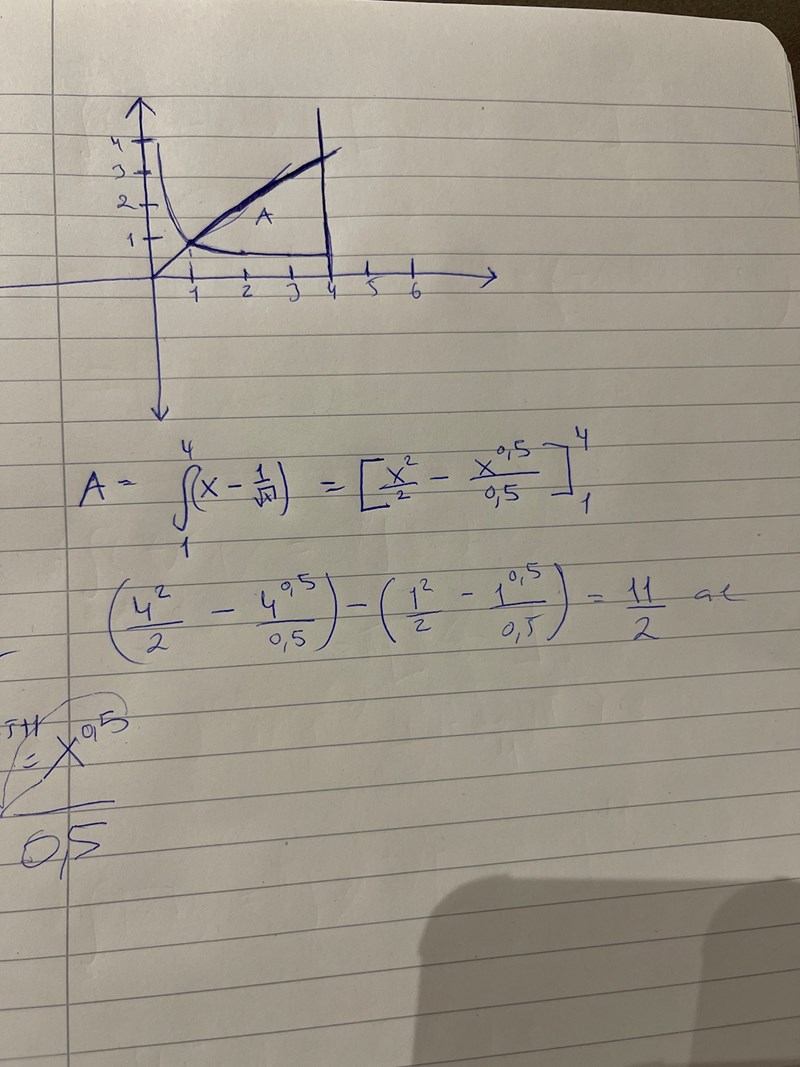 4
3
2
A
1
1 2 3 4 5 6
A = ∫₁⁴(x − 1/√x) = [x²/2 − x^0,5/0,5]₁⁴
(4²/2 − 4^0,5/0,5) − (1²/2 − 1^0,5/0,5) = 11/2 ae
= x^0,5
0,5